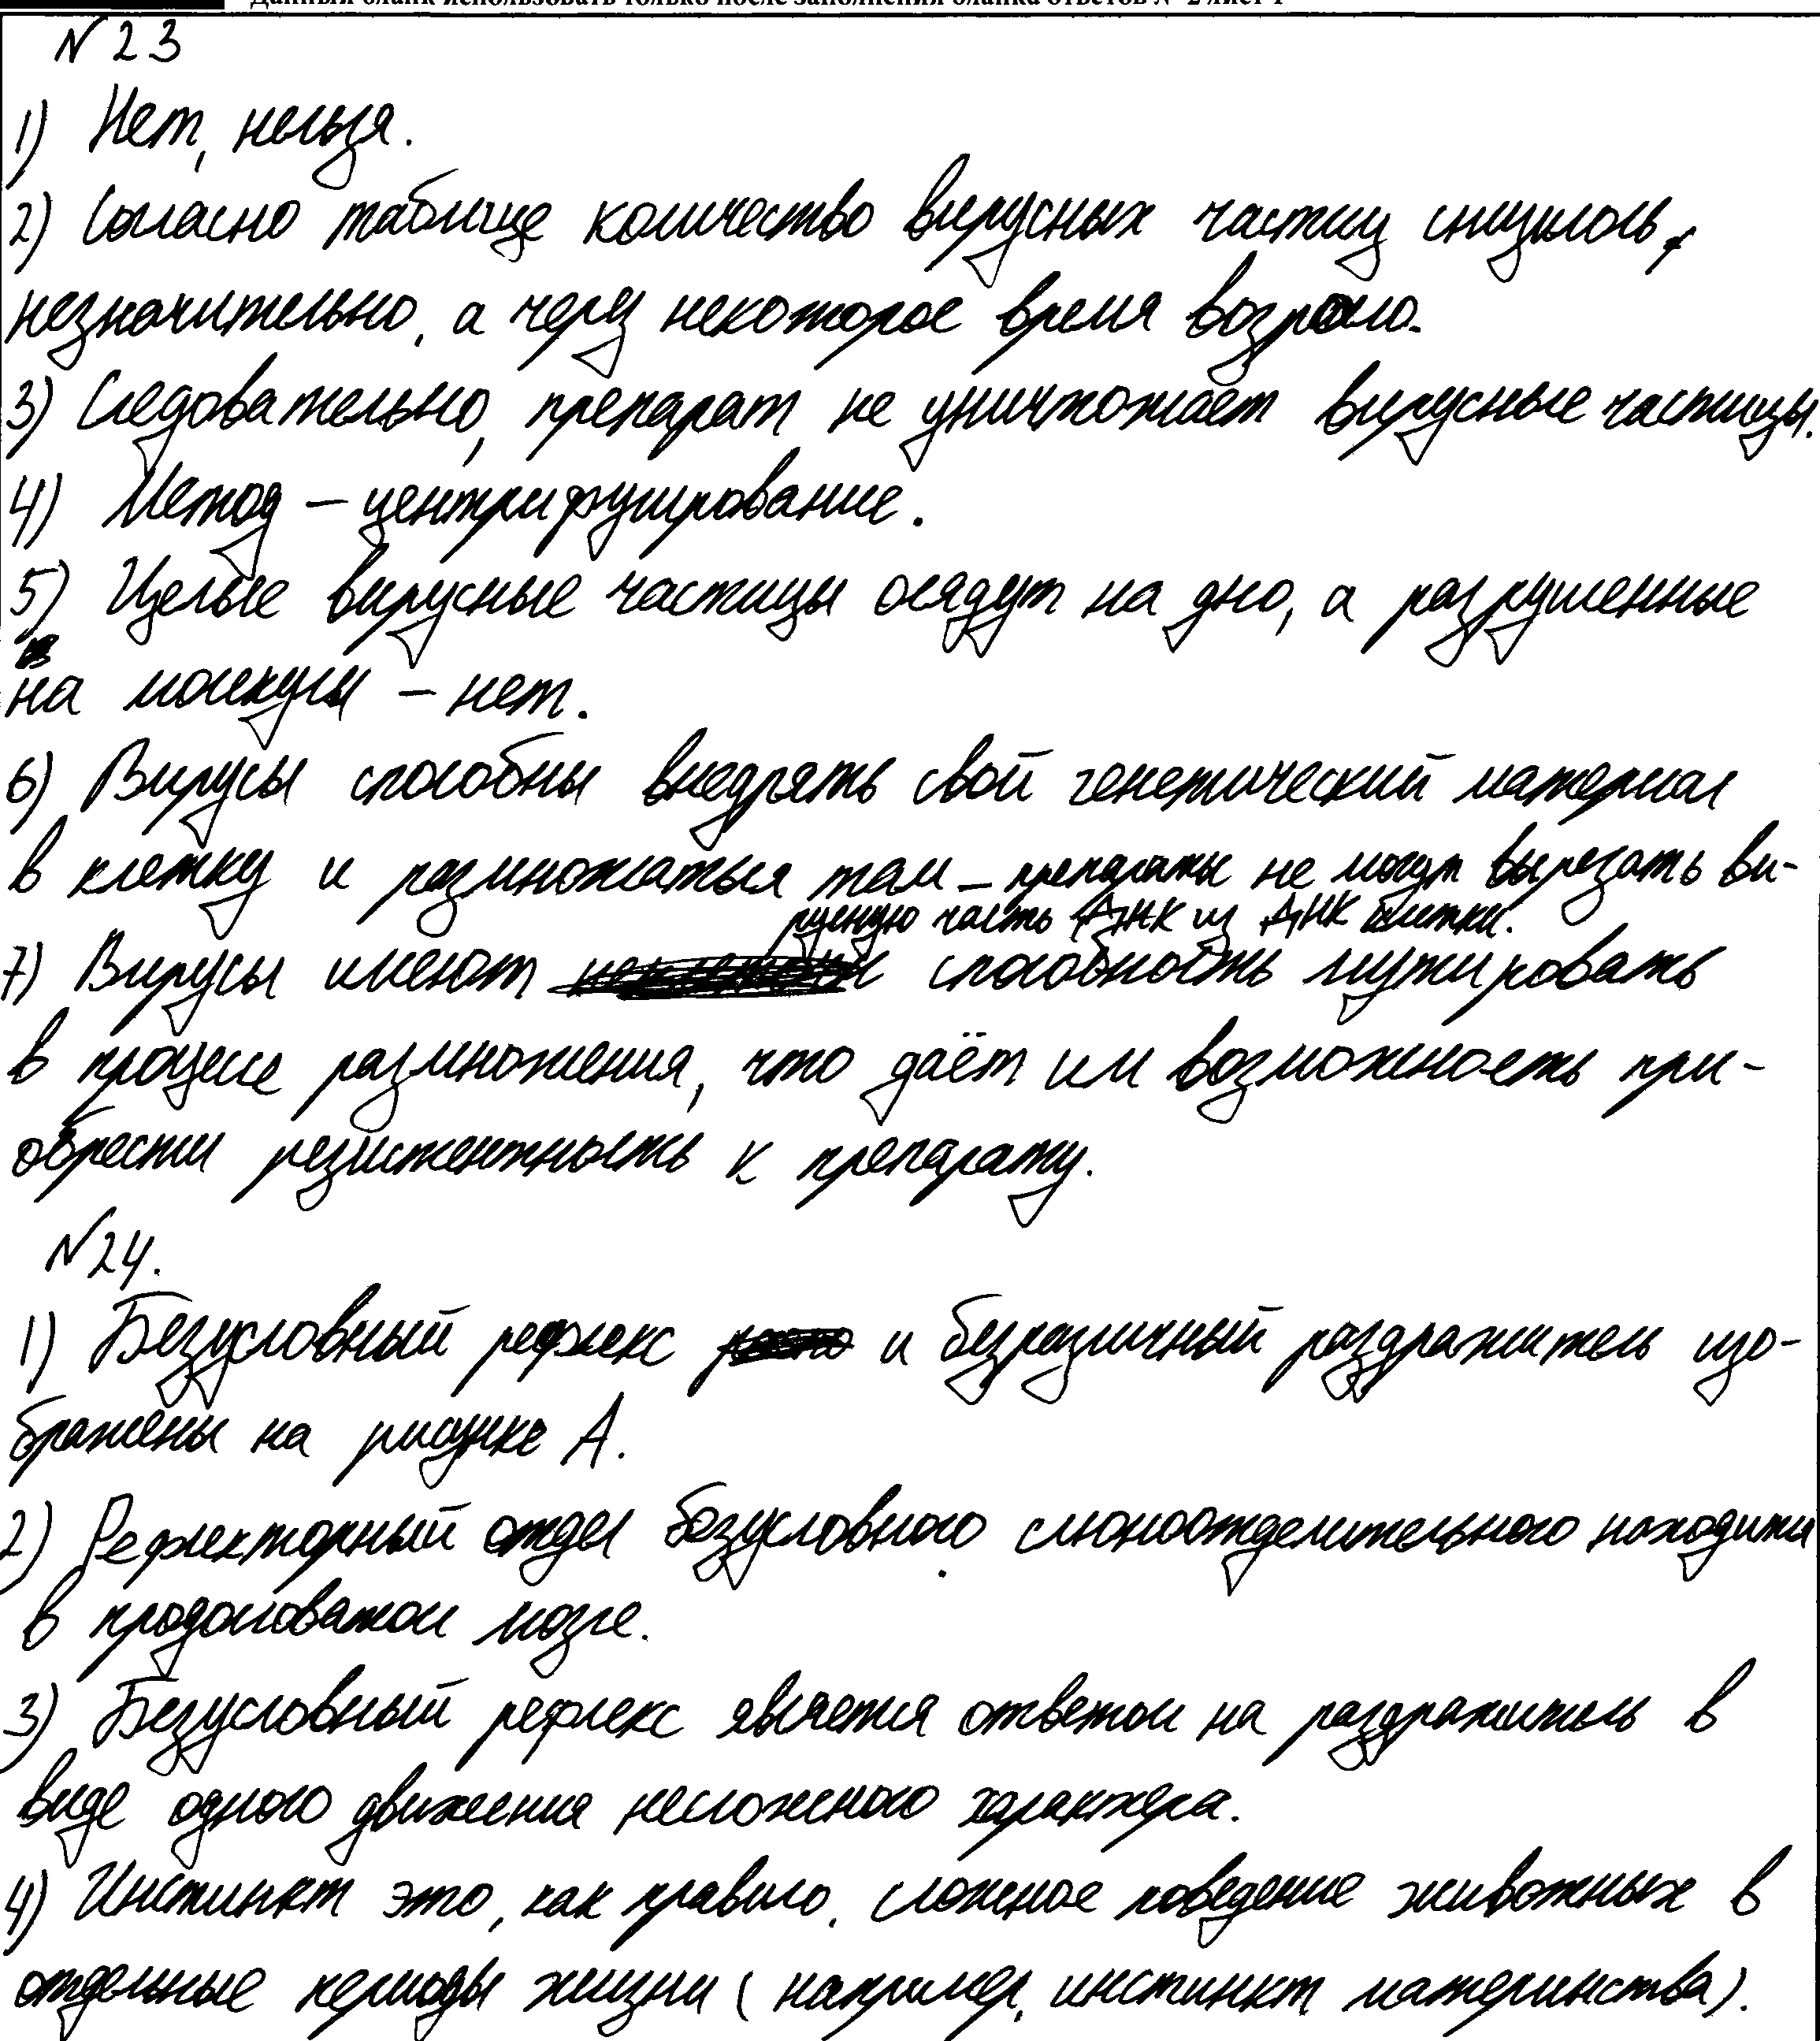 Данный бланк использовать только после заполнения бланка ответов № 2 лист 1
N 23
1) Нет, нельзя.
2) Согласно таблице количество вирусных частиц снизилось,
незначительно, а через некоторое время возросло.
3) Следовательно, препарат не уничтожает вирусные частицы.
4) Метод – центрифугирование.
5) Целые вирусные частицы осядут на дно, а разрушенные
на молекулы – нет.
6) Вирусы способны внедрять свой генетический материал
в клетку и размножаться там – препараты не могут вырезать ви-
русную часть ДНК из ДНК клетки.
7) Вирусы имеют способность мутировать
в процессе размножения, что даёт им возможность при-
обрести резистентность к препарату.
N 24.
1) Безусловный рефлекс и безразличный раздражитель изо-
бражены на рисунке А.
2) Рефлекторный отдел безусловного слюноотделительного находится
в продолговатом мозге.
3) Безусловный рефлекс является ответом на раздражитель в
виде одного движения несложного характера.
4) Инстинкт это, как правило, сложное поведение животных в
отдельные периоды жизни (например, инстинкт материнства).